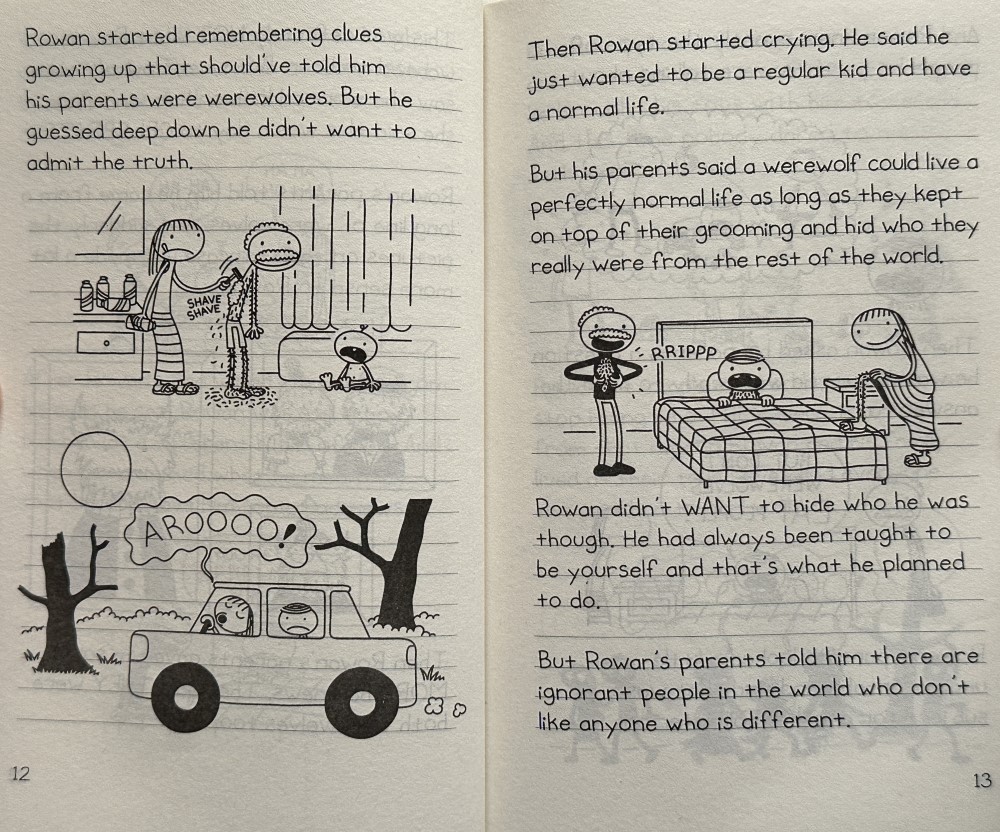 Rowan started remembering clues
growing up that should've told him
his parents were werewolves. But he
guessed deep down he didn't want to
admit the truth.
SHAVE
SHAVE
AROOOO!
12
Then Rowan started crying. He said he
just wanted to be a regular kid and have
a normal life.
But his parents said a werewolf could live a
perfectly normal life as long as they kept
on top of their grooming and hid who they
really were from the rest of the world.
RRIPPP
Rowan didn't WANT to hide who he was
though. He had always been taught to
be yourself and that's what he planned
to do.
But Rowan's parents told him there are
ignorant people in the world who don't
like anyone who is different.
13